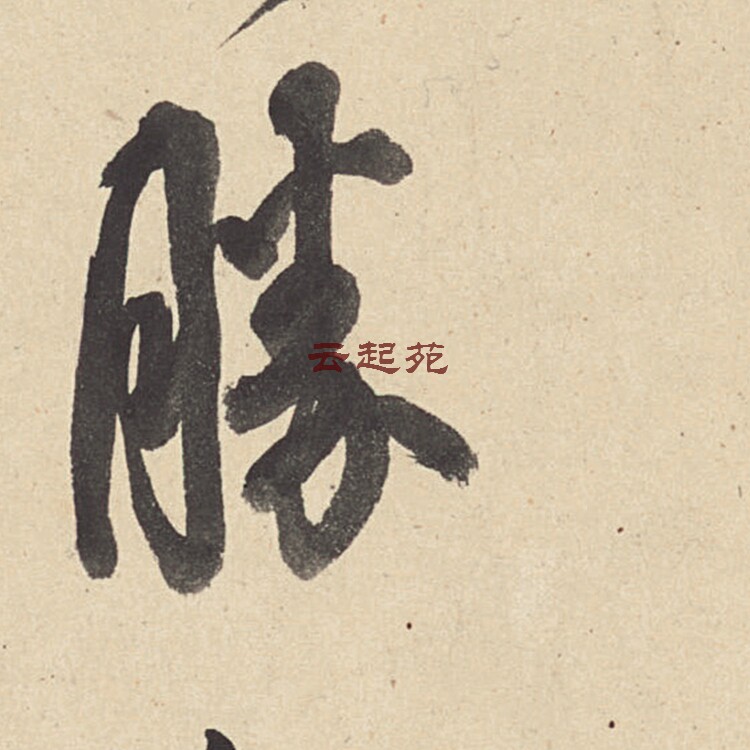 勝
云起苑